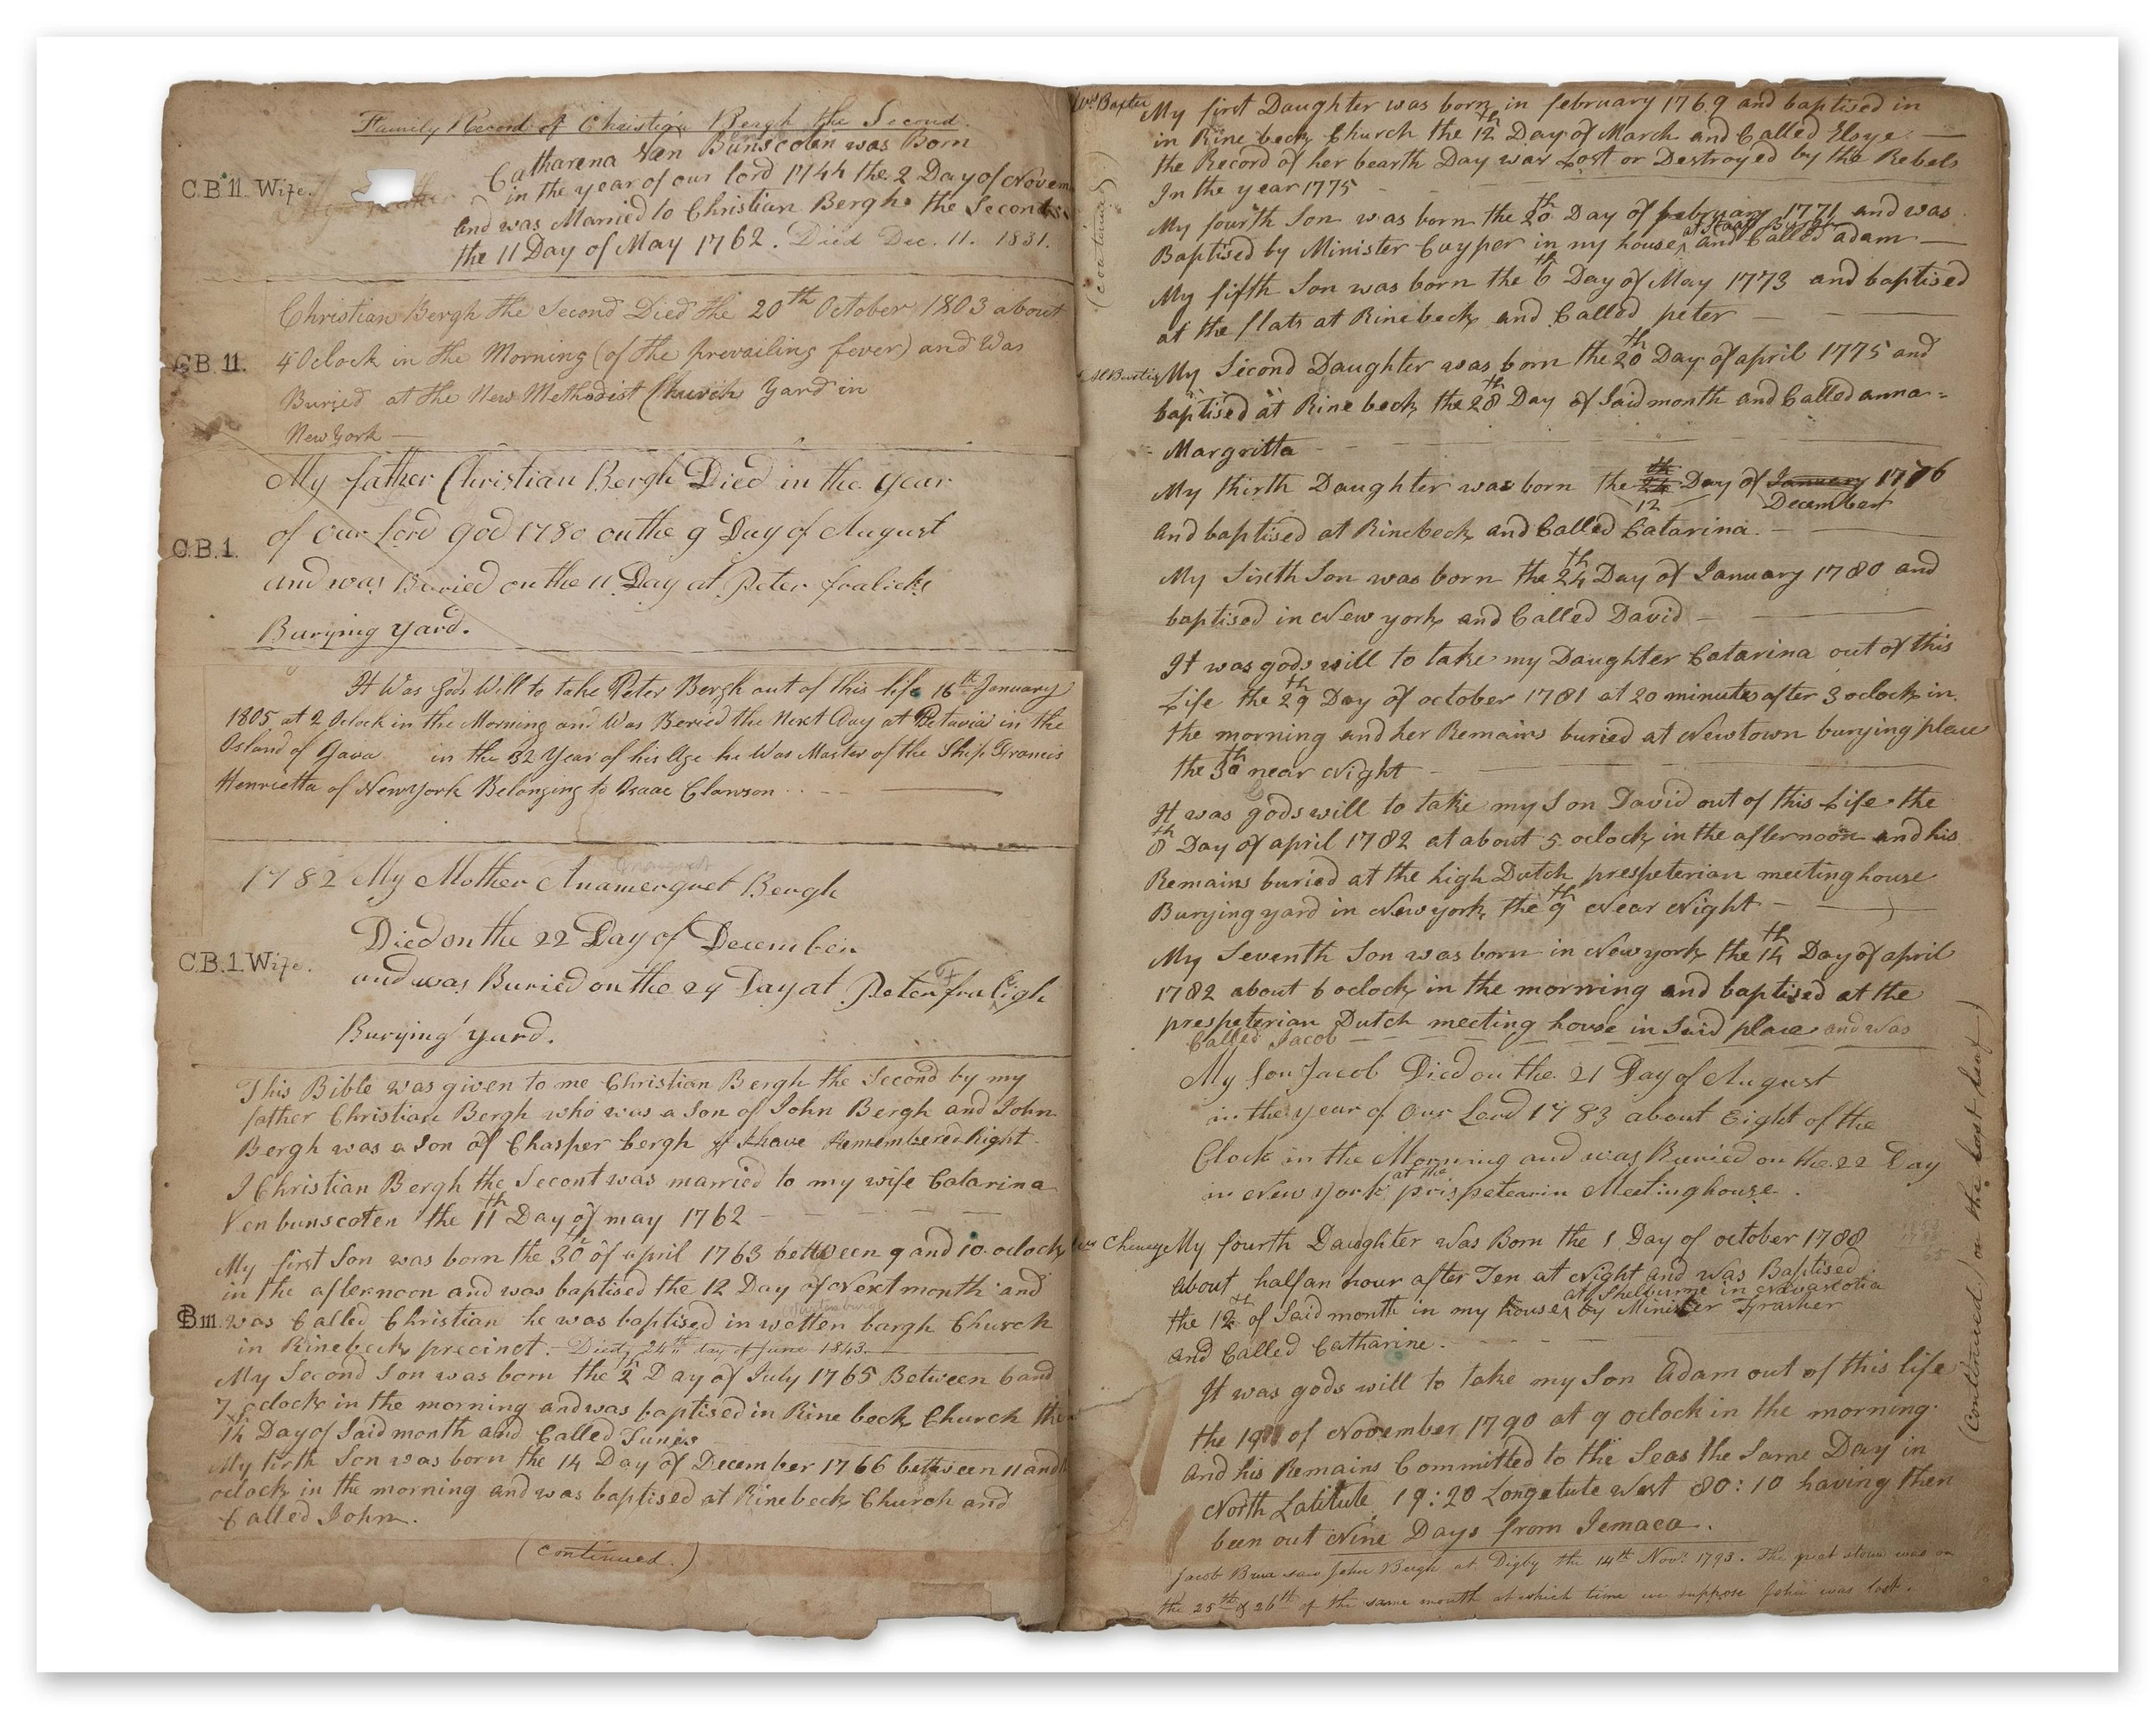 Family Record of Christian Bergh the Second.
C.B 11. Wife.
Catharena Van Bunscoten was Born
in the year of our lord 1744 the 2 Day of Novem
and was Married to Christian Bergh the Second
the 11 Day of May 1762. Died Dec. 11. 1831.
C.B. 11.
Christian Bergh the Second Died the 20th October 1803 about
4 Oclock in the Morning (of the prevailing fever) and Was
Buried at the New Methodist Church Yard in
New York —
C.B.1.
My father Christian Bergh Died in the year
of our lord god 1780 on the 9 Day of August
and was Buried on the 11 Day at Peter fralicks
Burying yard.
It Was Gods Will to take Peter Bergh out of this life 16th January
1805 at 2 Oclock in the Morning and Was Beried the Next Day at Betavia in the
Island of Java in the 32 Year of his Age he Was Master of the Ship Francis
Henrietta of New york Belonging to Isaac Clawson
1782 My Mother Anamergret Bergh
Died on the 22 Day of December
C.B.1.Wife.
and was Buried on the 24 Day at Peter fraligh
Burying yard.
This Bible was given to me Christian Bergh the Second by my
father Christian Bergh who was a Son of John Bergh and John
Bergh was a Son of Chasper bergh if I have Remembered Right
I Christian Bergh the Secont was married to my wife Catarina
Ven bunscoten the 11th Day of may 1762
My first Son was born the 30th of april 1763 between 9 and 10 oclock
in the afternoon and was baptised the 12 Day of Next month and
C.B 111. was Called Christian he was baptised in wetten bargh Church
in Rinebeck precinct. Died, 24th day of June 1843.
My Second Son was born the 2th Day of July 1765 Between 6 and
7 oclock in the morning and was baptised in Rine beck Church the
14th Day of Said month and Called Tunis
My tirth Son was born the 14 Day of December 1766 between 11 and
oclock in the morning and was baptised at Rinebeck Church and
Called John.
(continued.)
Wm Baxter
My first Daughter was born in february 1769 and baptised in
in Rine beck Church the 12th Day of March and Called Elsye —
the Record of her bearth Day was Lost or Destroyed by the Rebels
In the year 1775
(continued)
My fourth Son was born the 20th Day of february 1771 and was
Baptised by Minister Cuyper in my house, at Staat Burgh and Called adam —
My fifth Son was born the 6th Day of May 1773 and baptised
at the flats at Rinebeck and Called peter —
My Second Daughter was born the 20th Day of april 1775 and
baptised at Rine beck the 28th Day of Said month and Called anna =
Margritta
My thirth Daughter was born the 24th Day of January 1776
12 December
and baptised at Rinebeck and Called Catarina.
My Sixth Son was born the 24th Day of January 1780 and
baptised in New york and Called David
It was gods will to take my Daughter Catarina out of this
Life the 29th Day of october 1781 at 20 minutes after 3 oclock in
the morning and her Remains buried at Newtown burying place
the 30th near Night
It was gods will to take my Son David out of this Life the
8th Day of april 1782 at about 5 oclock in the afternoon and his
Remains buried at the high Dutch prespeterian meeting house
Burying yard in New york the 9th Near Night
My Seventh Son was born in New york the 14th Day of april
1782 about 6 oclock in the morning and baptised at the
prespeterian Dutch meeting house in Said place and was
Called Jacob
My Son Jacob Died on the 21 Day of August
in the year of Our Lord 1783 about Eight of the
Clock in the Morning and was Buried on the 22 Day
in New york at the prispetearin Meetinghouse.
Cheney
My fourth Daughter Was Born the 1 Day of october 1788
About half an hour after Ten at Night and Was Baptised
the 12th of Said month in my house, at Shelburne in Novascotia by Minister Frasher
and Called Catharine.
It was gods will to take my Son Adam out of this life
the 19 of November 1790 at 9 oclock in the morning
and his Remains Committed to the Seas the Same Day in
North Latitute 19:20 Longetute West 80:10 having then
been out Nine Days from Jemaca.
Jacob saw John Bergh at Digby the 14th Novr. 1793. The great storm was on
the 25th & 26th of the same month at which time we suppose John was lost.
(Continued on the last leaf)